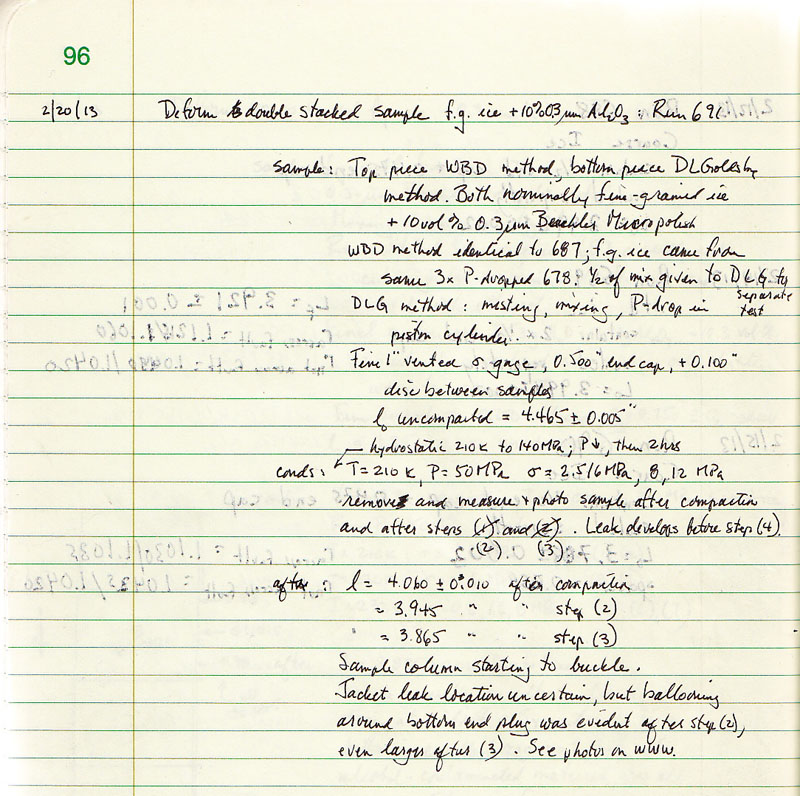 96
2/20/13 Deform double stacked sample f.g. ice + 10% 0.3 µm Al2O3 : Run 691
sample: Top piece WBD method, bottom piece DLGoldsby
method. Both nominally fine-grained ice
+ 10 vol % 0.3 µm Buehler Micropolish
WBD method identical to 687; f.g. ice came from
same 3x P-dropped 678; 1/2 of mix given to DLG for
separate
test
DLG method : misting, mixing, P-drop in
piston cylinder.
Fine 1" vented σ gage, 0.500" end cap, + 0.100"
disc between samples
l0 uncompacted = 4.465 ± 0.005"
hydrostatic 210K to 140MPa; P↓, then 2hrs
conds: T = 210 K, P = 50 MPa σ = 2.5/6 MPa, 8, 12 MPa
remove and measure + photo sample after compaction
and after steps (1) and (2). Leak develops before step (4).
(2) (3)
after: l = 4.060 ± 0.010 after compaction
= 3.945 " " step (2)
= 3.865 " " step (3)
Sample column starting to buckle.
Jacket leak location uncertain, but ballooning
around bottom end plug was evident after step (2),
even larger after (3). See photos on www.